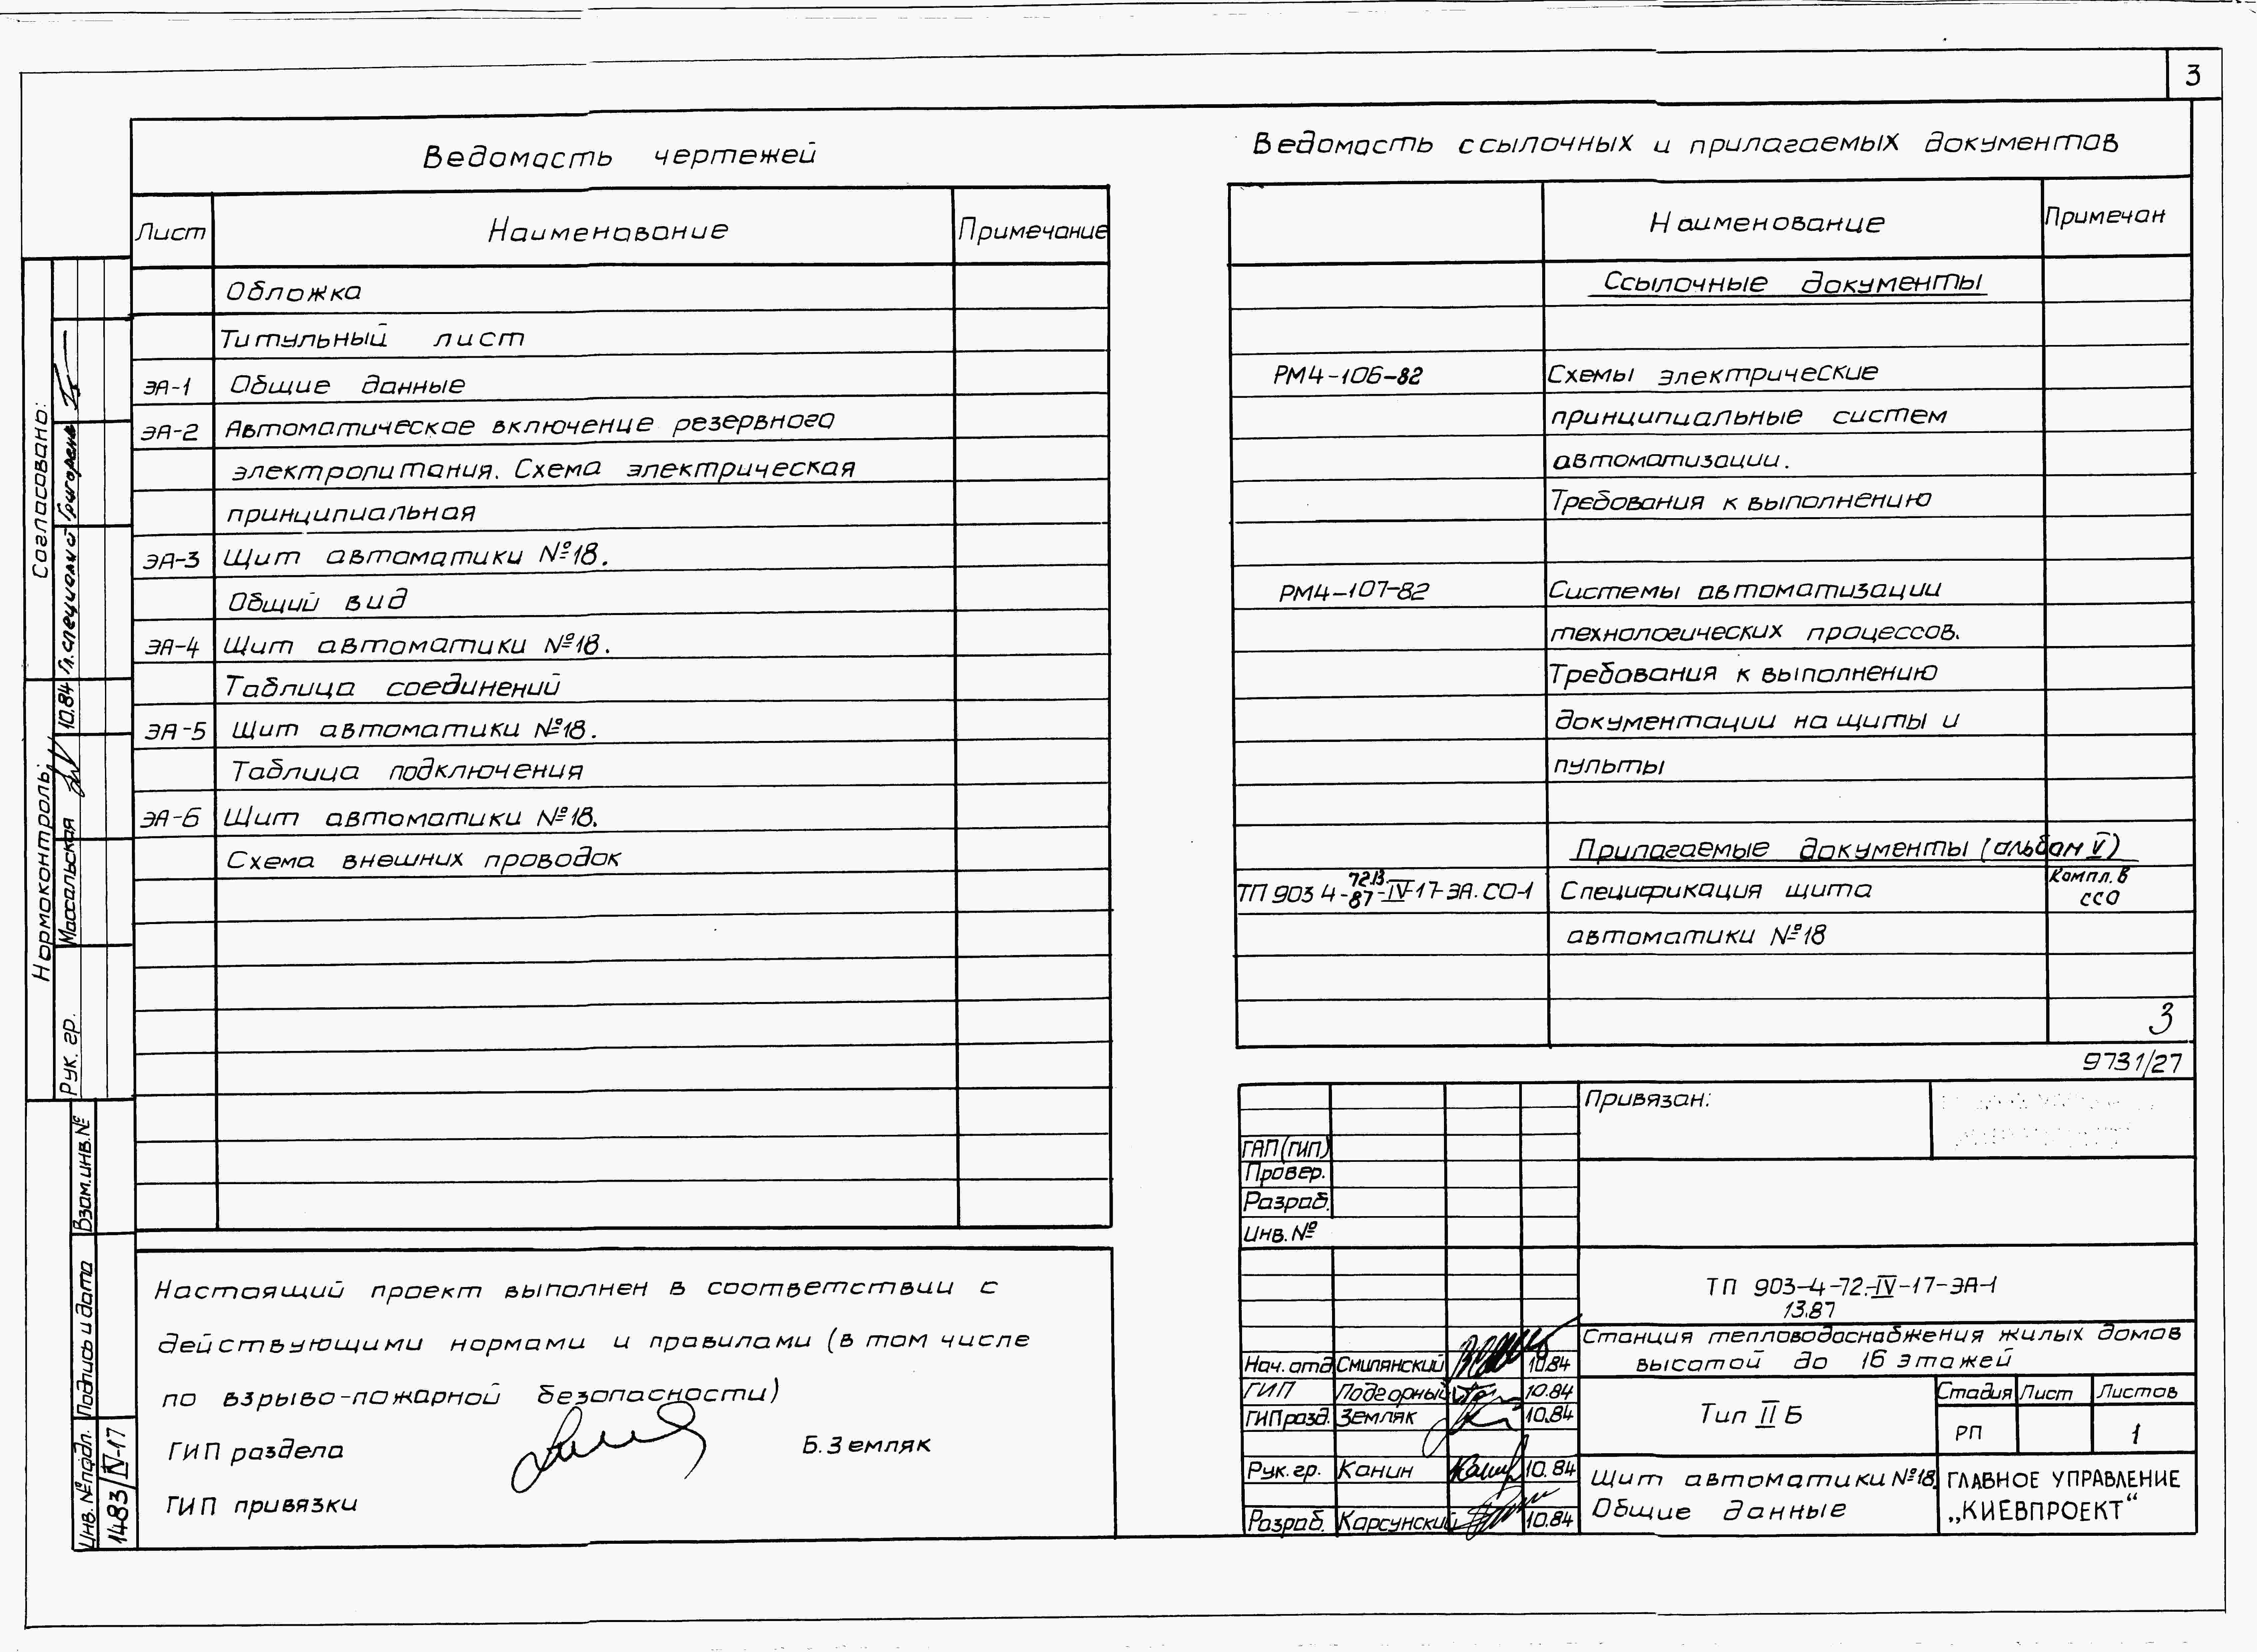 3
Ведомость чертежей
Лист Наименование Примечание
Обложка
Титульный лист
ЭА-1 Общие данные
ЭА-2 Автоматическое включение резервного
электропитания. Схема электрическая
принципиальная
ЭА-3 Щит автоматики №18.
Общий вид
ЭА-4 Щит автоматики №18.
Таблица соединений
ЭА-5 Щит автоматики №18.
Таблица подключения
ЭА-6 Щит автоматики №18.
Схема внешних проводок
Ведомость ссылочных и прилагаемых документов
Наименование Примечан
Ссылочные документы
РМ4-106-82 Схемы электрические
принципиальные систем
автоматизации.
Требования к выполнению
РМ4-107-82 Системы автоматизации
технологических процессов.
Требования к выполнению
документации на щиты и
пульты
Прилагаемые документы (альбом V)
ТП 903 4-72.13.87-IV-17-ЭА.СО-1 Спецификация щита Компл. в
автоматики №18 ССО
3
9731/27
Настоящий проект выполнен в соответствии с
действующими нормами и правилами (в том числе
по взрыво-пожарной безопасности)
ГИП раздела Б. Земляк
ГИП привязки
Привязан:
ГАП (ГИП)
Провер.
Разраб.
Инв. №
ТП 903-4-72.-IV-17-ЭА-1
13.87
Станция тепловодоснабжения жилых домов
высотой до 16 этажей
Нач. отд Смилянский 10.84
ГИП Подгорный 10.84
ГИП разд. Земляк 10.84
Рук. гр. Канин 10.84
Разраб. Карсунский 10.84
Тип II Б
Стадия Лист Листов
РП 1
Щит автоматики №18.
Общие данные
ГЛАВНОЕ УПРАВЛЕНИЕ
„КИЕВПРОЕКТ“
Согласовано:
Гл. специалист Григорене
Нормоконтроль:
Рук. гр. Массальская 10.84
Взам. инв. №
Подпись и дата
Инв. № подл.
1483/IV-17